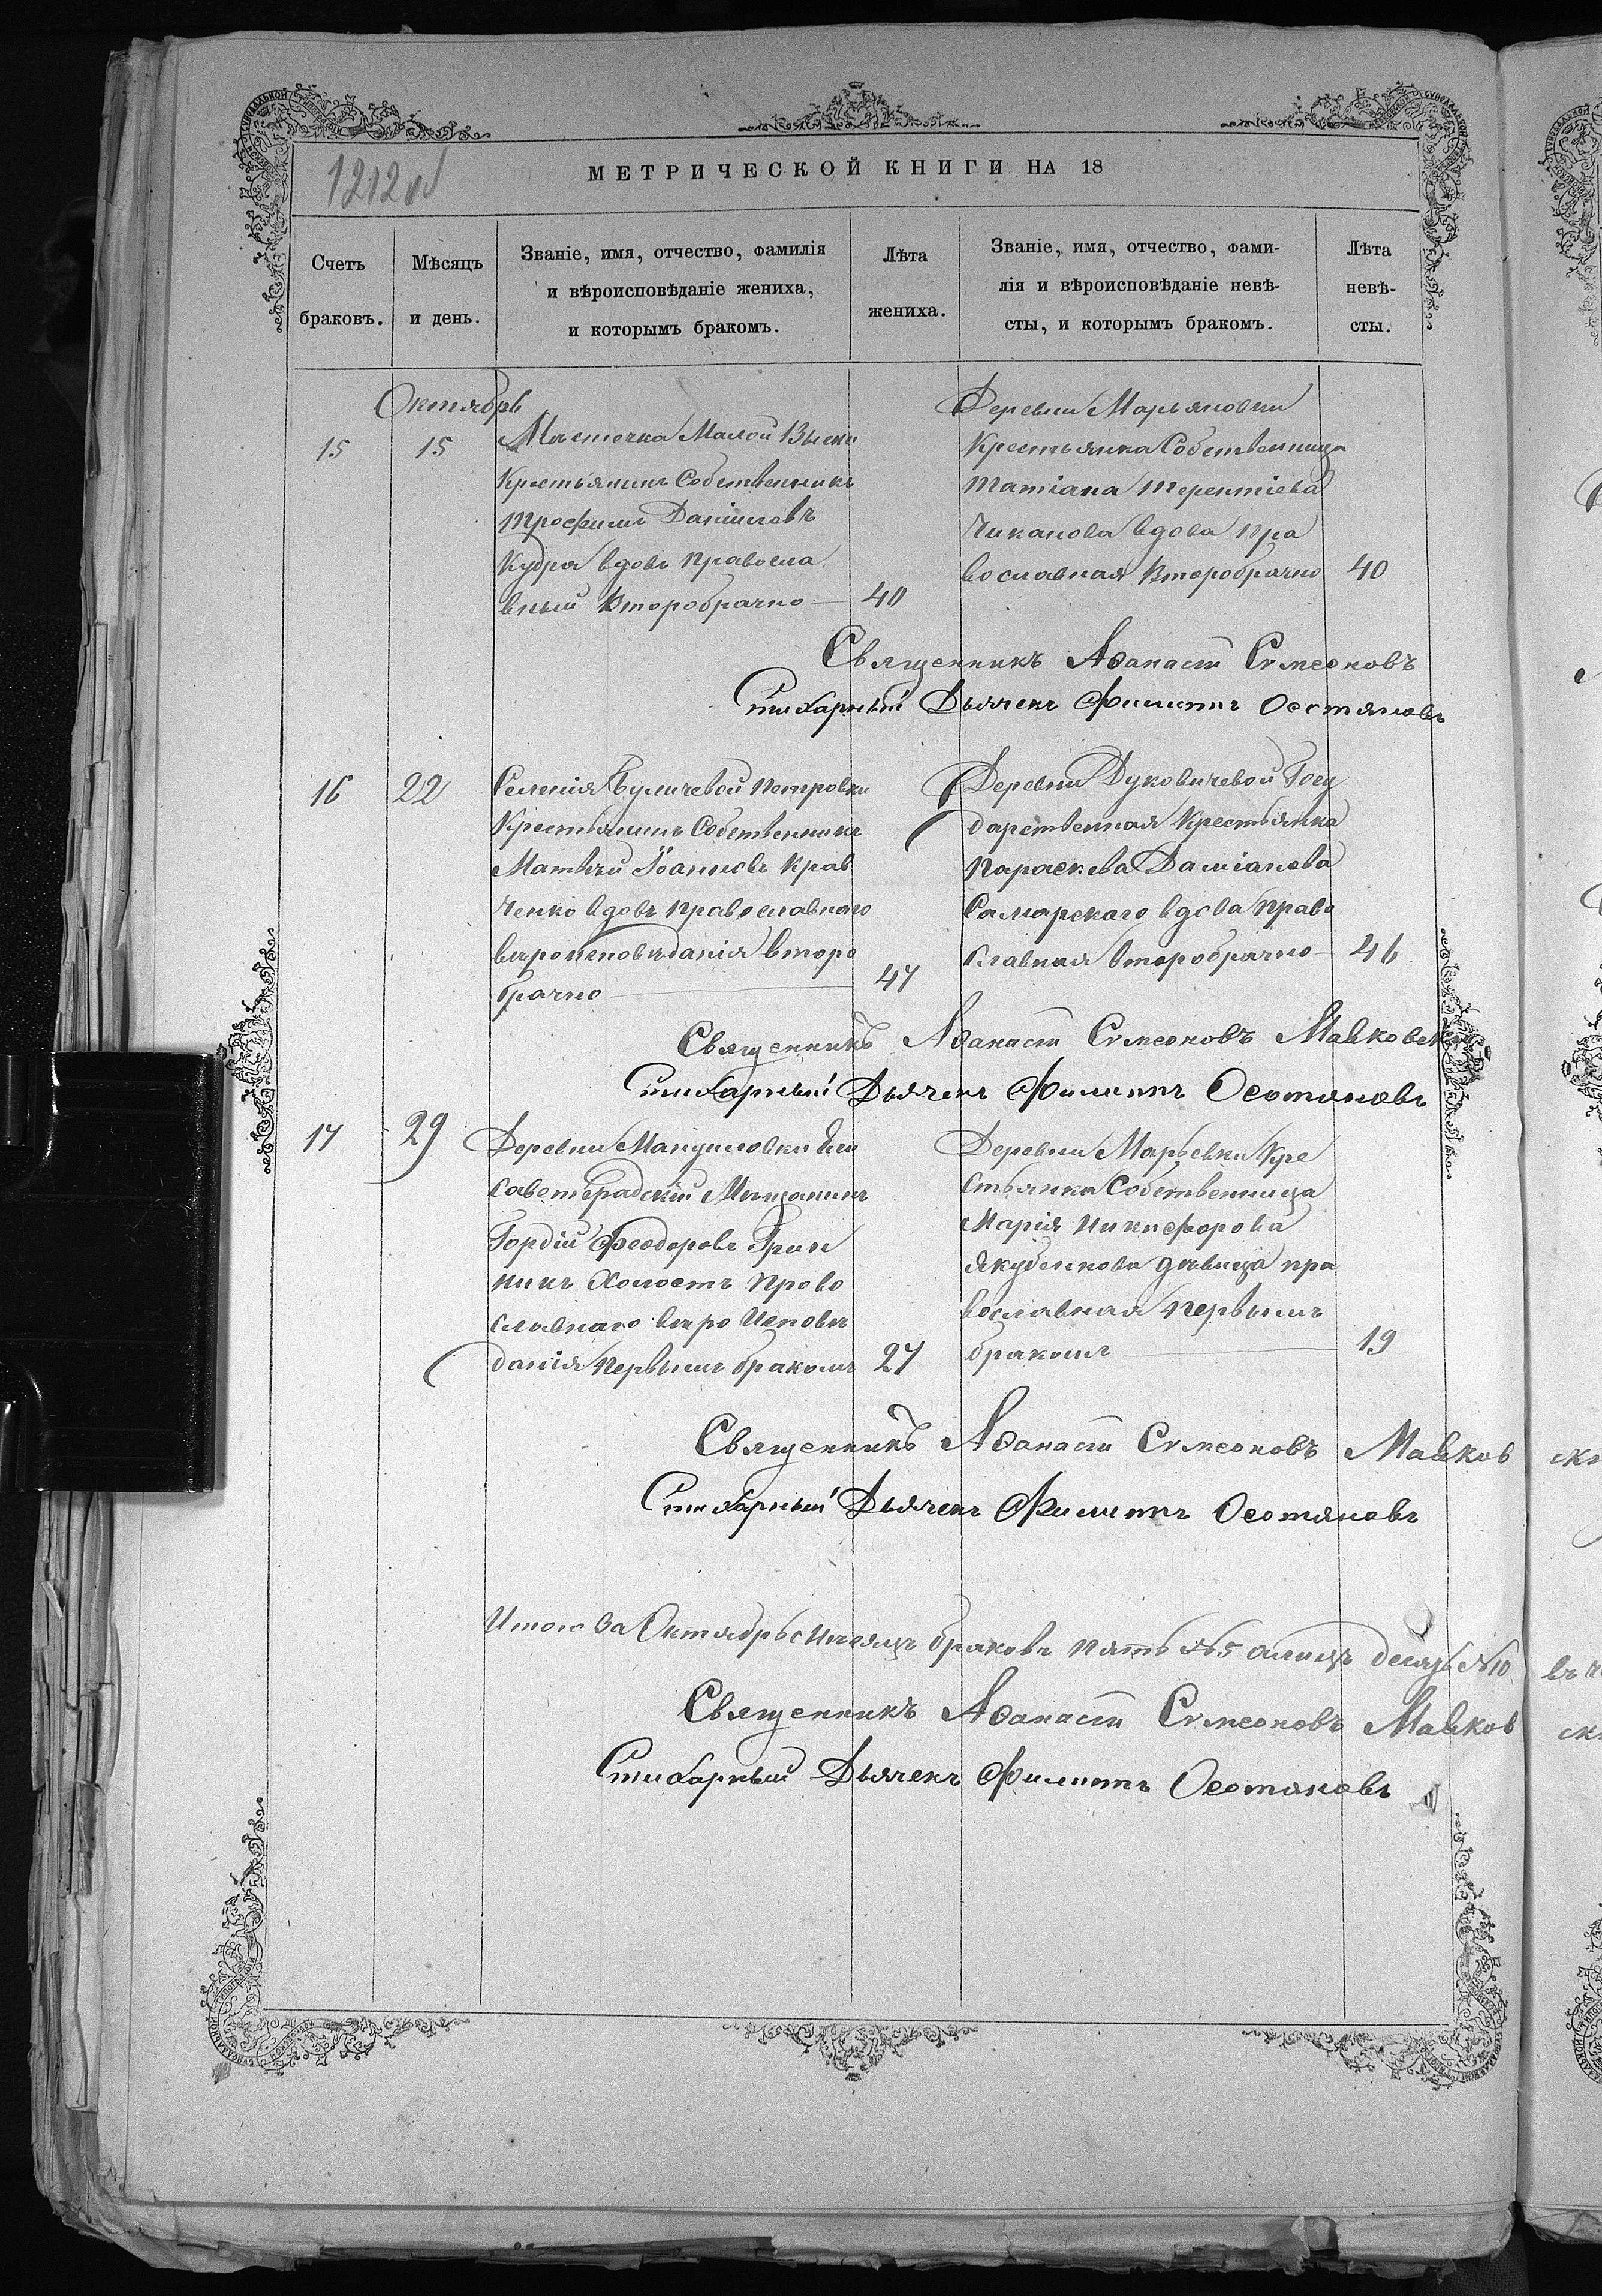 1212
МЕТРИЧЕСКОЙ КНИГИ НА 18
Счетъ браковъ.
Мѣсяцъ и день.
Званіе, имя, отчество, фамилія
и вѣроисповѣданіе жениха,
и которымъ бракомъ.
Лѣта
жениха.
Званіе, имя, отчество, фами-
лія и вѣроисповѣданіе невѣ-
сты, и которымъ бракомъ.
Лѣта
невѣ-
сты.
Октябрь
15
15
Мѣстечка Малой Выски
Крестьянинъ Собственникъ
Трофимъ Даніиловъ
Кудря вдовъ Правосла
вный Второбрачно
40
Деревни Марьяновки
Крестьянка Собственница
Татіана Терентіева
Чиканова вдова Пра
вославная Второбрачно
40
Священникъ Аѳанасій Сѵмеоновъ
Стихарный Дьячекъ Филиппъ Осотяновъ
16
22
Селенія Петровки
Крестьянинъ Собственникъ
Матвѣй Іоанновъ Крав
ченко вдовъ Православнаго
вѣроисповѣданія второ
брачно
47
Деревни Дуковичевой Госу
дарственная Крестьянка
Параскева Даміанова
Самарскаго вдова Право
славная второбрачно
46
Священникъ Аѳанасій Сѵмеоновъ Мавковск
Стихарный Дьячекъ Филиппъ Осотяновъ
17
29
Деревни Мануиловки Ели
саветградскій Мѣщанинъ
Гордій Феодоровъ Грин
никъ Холостъ Право
славнаго вѣро Исповѣ
данія Первымъ бракомъ
27
Деревни Марьевки Кре
стьянка Собственница
Марія Никифорова
Якубенкова дѣвица пра
вославная Первымъ
бракомъ
19
Священникъ Аѳанасій Сѵмеоновъ Мавков
Стихарный Дьячекъ Филиппъ Осотяновъ
Итого За Октябрь Мѣсяцъ браковъ Пять №5 а лицъ десять №10
Священникъ Аѳанасій Сѵмеоновъ Мавков
Стихарный Дьячекъ Филиппъ Осотяновъ